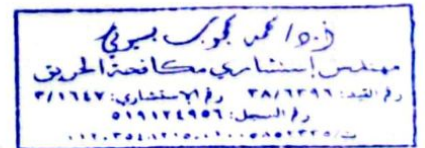 أ.د/ محمد محجوب بسيوني
مهندس إستشاري مكافحة الحريق
رقم القيد: ٣٨/٦٣٩٦ رقم الاستشاري: ٣/١٦٤٧
رقم السجل: ٥١٩١٢٤٩٥٦